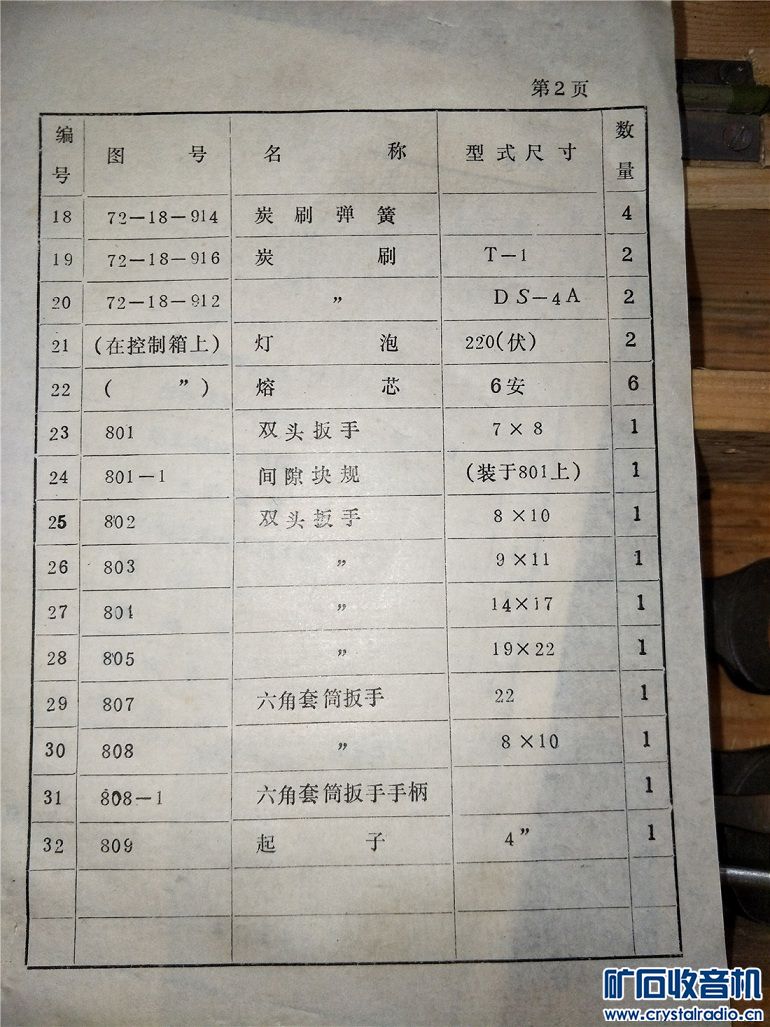 第2页
编号 图号 名称 型式尺寸 数量
18 72－18－914 炭刷弹簧 4
19 72－18－916 炭刷 T－1 2
20 72－18－912 ” DS－4A 2
21 (在控制箱上) 灯泡 220(伏) 2
22 ( ” ) 熔芯 6安 6
23 801 双头扳手 7×8 1
24 801－1 间隙块规 (装于801上) 1
25 802 双头扳手 8×10 1
26 803 ” 9×11 1
27 804 ” 14×17 1
28 805 ” 19×22 1
29 807 六角套筒扳手 22 1
30 808 ” 8×10 1
31 808－1 六角套筒扳手手柄 1
32 809 起子 4” 1
矿石收音机
www.crystalradio.cn